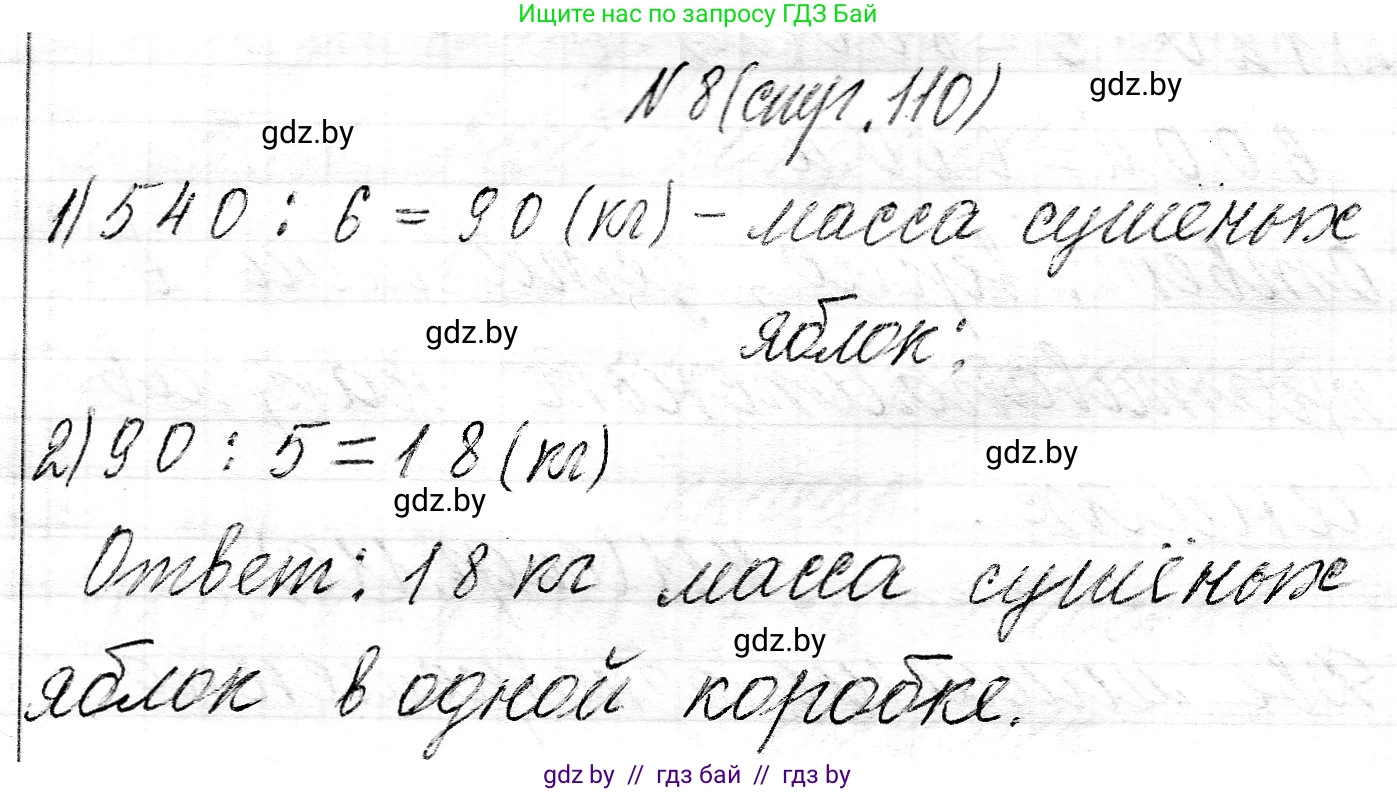 Ищите нас по запросу ГДЗ Бай
N 8 (стр. 110)
gdz.by
gdz.by
1) 540 : 6 = 90 (кг) – масса сушёных
gdz.by
яблок;
2) 90 : 5 = 18 (кг)
gdz.by
gdz.by
Ответ: 18 кг масса сушёных
gdz.by
яблок в одной коробке.
gdz by // гдз бай // гдз by